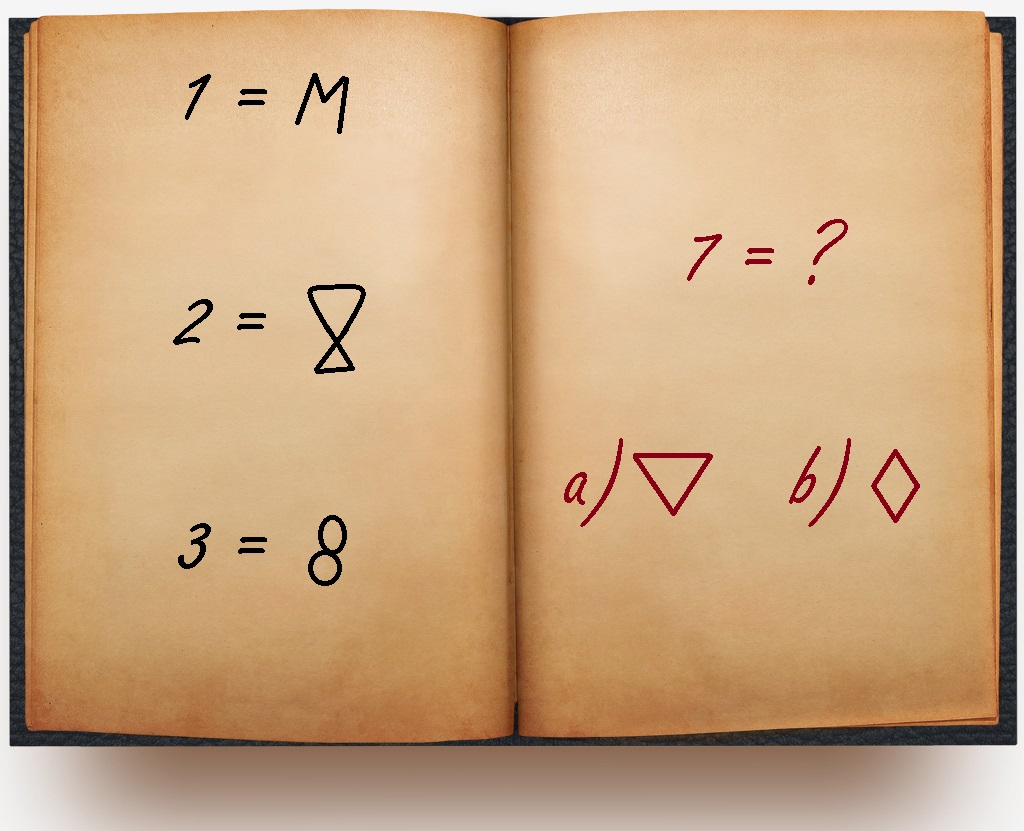 1 = M
2 =
3 = 8
7 = ?
a) b)